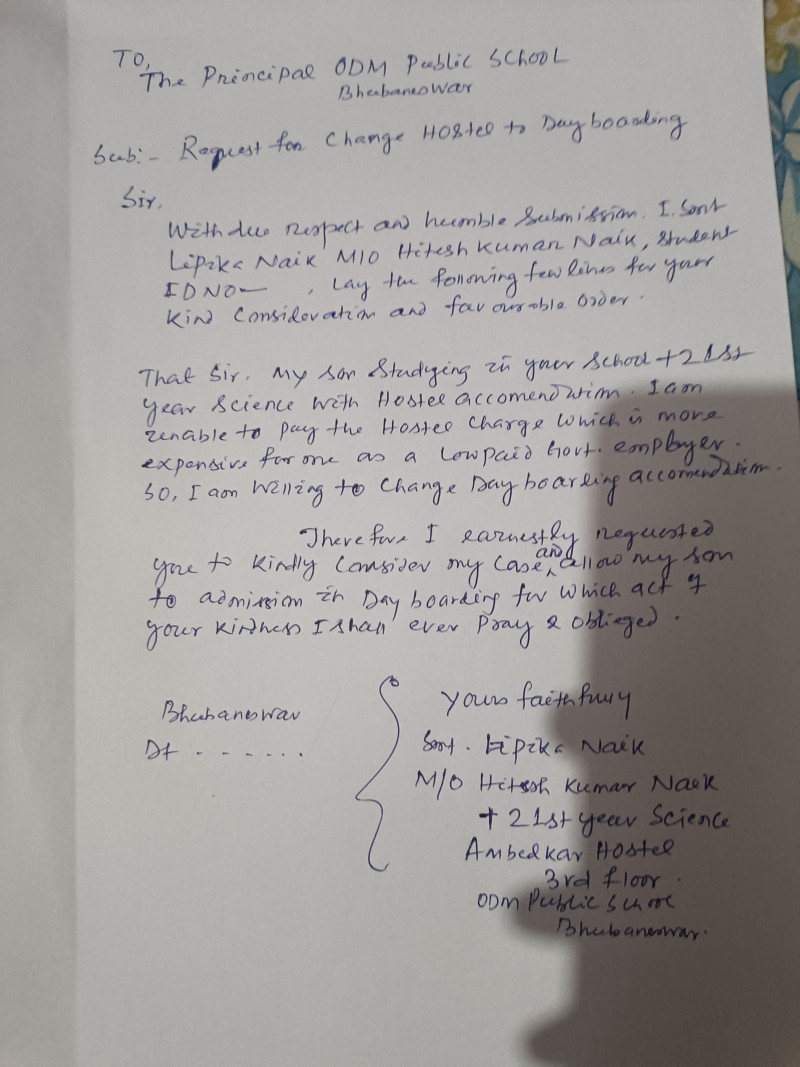 To,
The Principal ODM Public School
Bhubaneswar
Sub:- Request for Change Hostel to Day boarding
Sir,
With due respect and humble Submission. I. Smt
Lipika Naik M/O Hitesh Kumar Naik, Student
ID NO— , Lay the following few lines for your
Kind Consideration and favourable order.
That Sir. My son Studying in your School +2 1st
year Science with Hostel accomendation. I am
unable to pay the Hostel Charge which is more
expensive for me as a Low paid Govt. employer.
So, I am Willing to Change Day boarding accomendation.
Therefore I earnestly requested
you to kindly Consider my Case, and allow my son
to admission in Day boarding for which act of
your kindness I shall ever Pray & oblieged.
Bhubaneswar
Dt . . . . . .
Yours faithfully
Smt. Lipika Naik
M/O Hitesh Kumar Naik
+2 1st year Science
Ambedkar Hostel
3rd floor.
ODM Public School
Bhubaneswar.